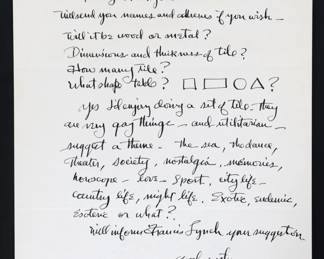 Will send you names and address if you wish —
Will it be wood or metal?
Dimensions and thickness of tile?
How many tile?
What shape table?
Yes I'd enjoy doing a set of tile. They
are very gay things — and utilitarian —
suggest a theme — the sea, the dance,
theater, society, nostalgia, memories,
horoscope — love — sport, city life —
country life, night life. Exotic,
esoteric or what?
Will inform Francis Lynch your suggestion